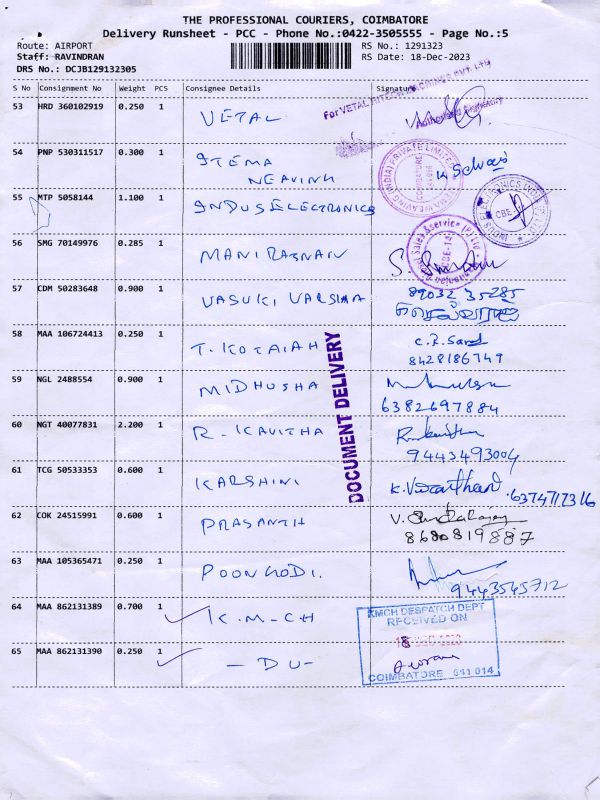 THE PROFESSIONAL COURIERS, COIMBATORE
Delivery Runsheet - PCC - Phone No.:0422-3505555 - Page No.:5
Route: AIRPORT
RS No.: 1291323
Staff: RAVINDRAN
RS Date: 18-Dec-2023
DRS No.: DCJB129132305
S No Consignment No Weight PCS Consignee Details Signature
For VETAL
Authorised Signatory
53 HRD 360102919 0.250 1 VETAL
54 PNP 530311517 0.300 1 STEMA
NEAVING
(INDIA) PRIVATE LIMITED
COIMBATORE
55 MTP 5058144 1.100 1 INDUS ELECTRONICS
CBE
56 SMG 70149976 0.285 1 MANIRATNAN
Sales & Service (P) Ltd
CBE-14
57 CDM 50283648 0.900 1 VASUKI VARSINA 89032 35285
58 MAA 106724413 0.250 1 T. KOTAIAH
8428186749
DOCUMENT DELIVERY
59 NGL 2488554 0.900 1 MIDHUSHA
6382697884
60 NGT 40077831 2.200 1 R. KAVITHA
9443493004
61 TCG 50533353 0.600 1 KARSHINI K. 6374717316
62 COK 24515991 0.600 1 PRASANTH V.
8680819887
63 MAA 105365471 0.250 1 POONKODI.
9443545712
64 MAA 862131389 0.700 1 K.M-CH
KMCH DESPATCH DEPT
RECEIVED ON
18 DEC 2023
65 MAA 862131390 0.250 1 - DU -
COIMBATORE 641 014